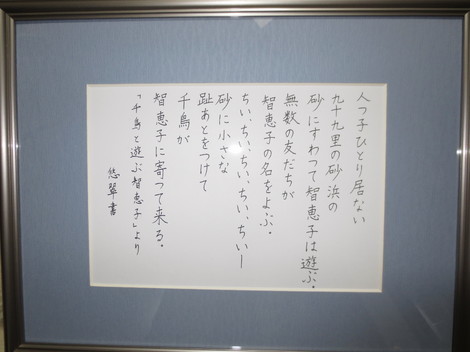 人つ子ひとり居ない
九十九里の砂浜の
砂にすわつて智恵子は遊ぶ。
無数の友だちが
智恵子の名をよぶ。
ちい、ちい、ちい、ちい、ちい―
砂に小さな
趾あとをつけて
千鳥が
智恵子に寄つて来る。
「千鳥と遊ぶ智恵子」より
悠翠書